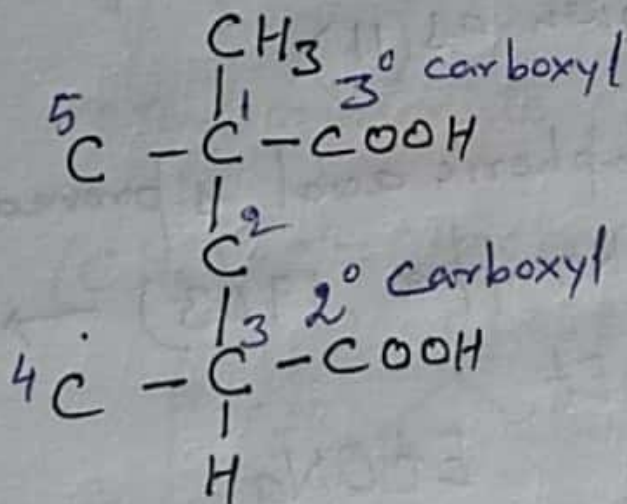 CH3 3° carboxyl
5 C - C1 - COOH
C2
2° carboxyl
4 C - C3 - COOH
H